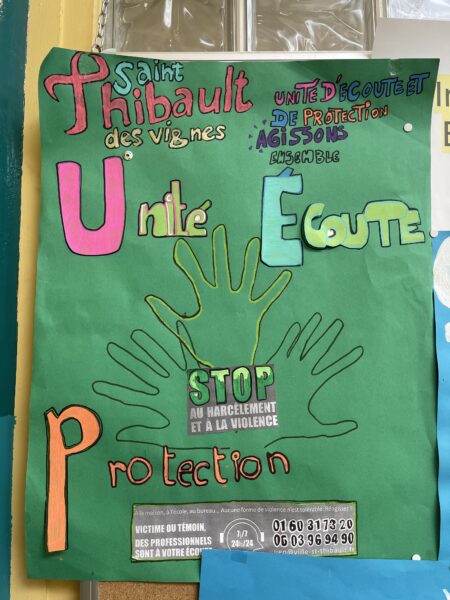 Saint
Thibault
des vignes
UNITÉ D'ECOUTE ET
DE PROTECTION
AGISSONS
ENSEMBLE
Unité
ÉCOUTE
STOP
AU HARCÈLEMENT
ET À LA VIOLENCE
Protection
À la maison, à l'école, au bureau... Aucune forme de violence n'est tolérable. Réagissez !
VICTIME OU TÉMOIN,
DES PROFESSIONNELS
SONT À VOTRE ÉCOUTE
7j/7
24h/24
01 60 31 73 20
06 03 96 94 90
lien@ville-st-thibault.fr